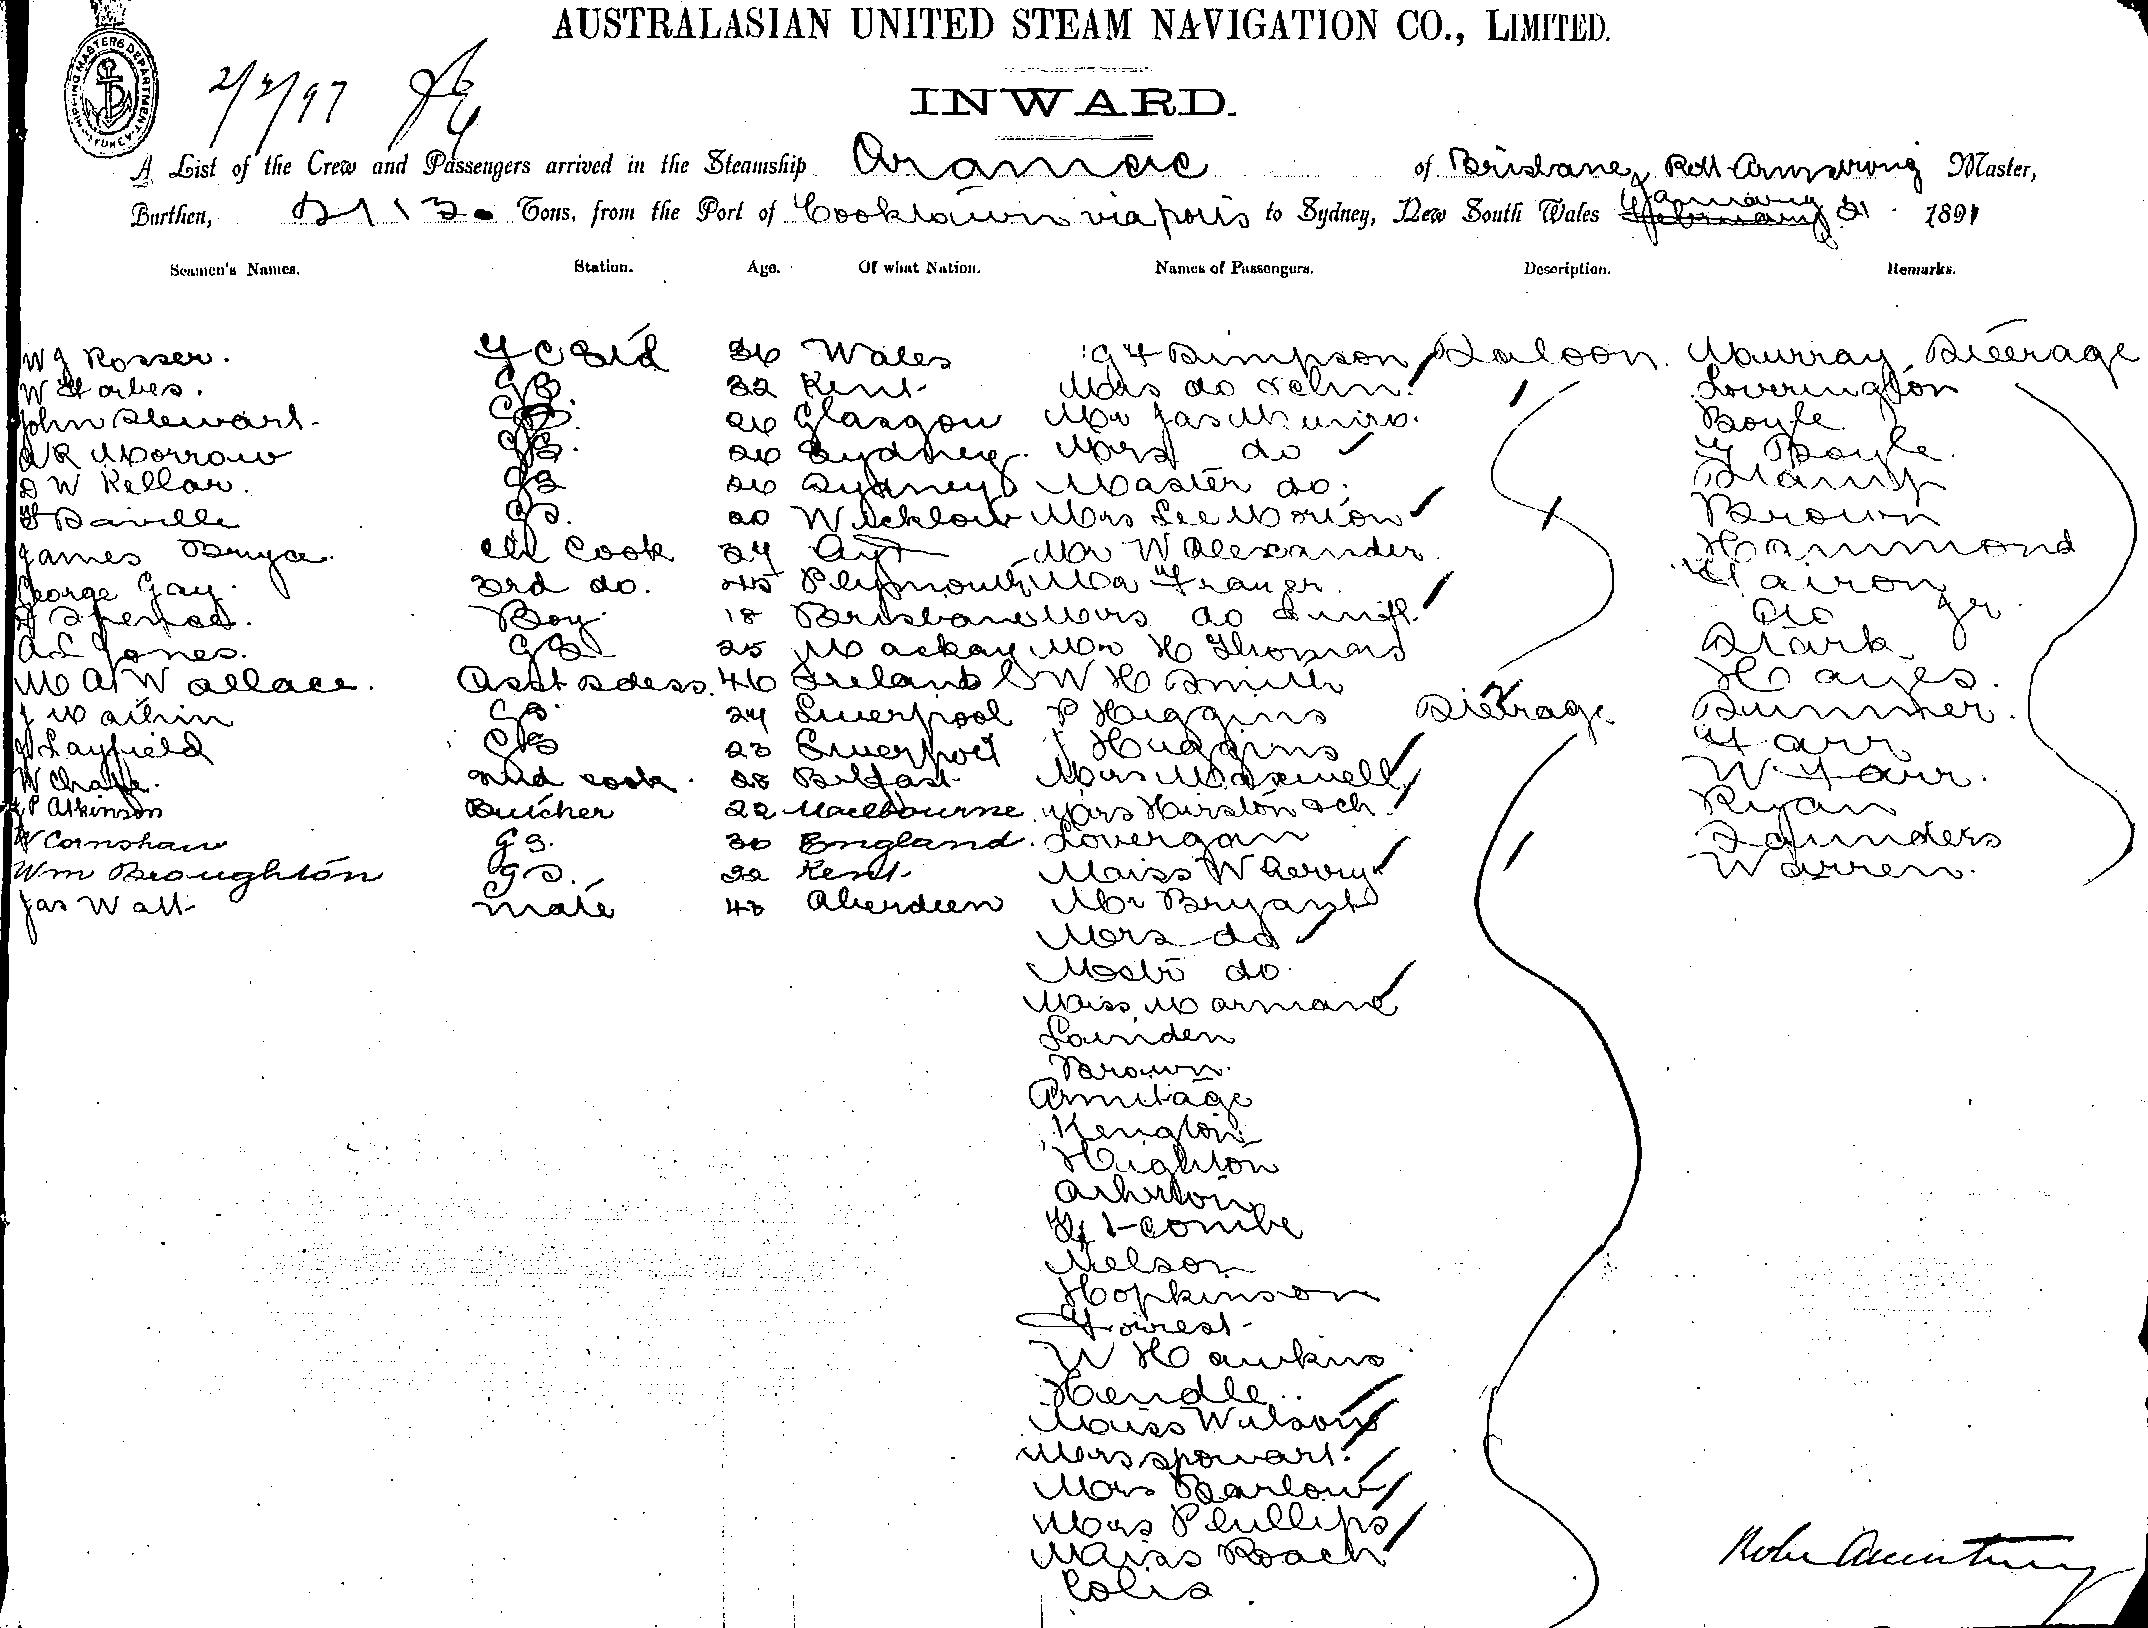 AUSTRALASIAN UNITED STEAM NAVIGATION CO., LIMITED.
2/2/97
INWARD.
A List of the Crew and Passengers arrived in the Steamship Aramac of Brisbane, Robt Armstrong Master,
Burthen, Tons, from the Port of Cooktown via ports to Sydney, New South Wales January 31 1897
Seamen's Names. Station. Age. Of what Nation. Names of Passengers. Description. Remarks.
W J Rosser. 36 Wales Simpson Saloon. Murray Steerage
W Forbes. GS 32 Kent Mrs do
John Stewart. GS. 26 Glasgow Mr Jas Munro. Boyle
Morrow GS. 26 Sydney. Mrs do Boyle.
W Kellar. GS 26 Sydney Master do. Stamp
GS. 20 Wicklow Mrs Lee Morton Brown
James Bryce. Cook 24 Ayr Mr W Alexander. Hammond
George Gay. 3rd do. 45 Plymouth Mr
Spence. Boy 18 Brisbane Mrs do do Jr.
Jones. GS 25 Mackay Mr H Thomas Stark
Wallace. Asst Sdess. 46 Ireland W H Smith Hayes.
GS. 24 Liverpool P Higgins Steerage Summer.
Layfield GS 23 Liverpool J Higgins Farr
2nd cook. 28 Belfast Mrs Maxwell W Farr.
P Atkinson Butcher 22 Melbourne. Mrs Ryan
W Cornshaw GS. 30 England. Lovergan Saunders
Wm Broughton GS. 32 Kent. Miss Wherry Warren.
Jas Watt mate 43 Aberdeen Mr Bryant
Mrs do
Mastr do.
Miss
Brown.
Armitage
Highton
Nelson
Hopkinson
Forrest
W Hawkins
Hendle
Miss Wilson
Mrs Spowart.
Mrs Barlow
Mrs Phillips
Miss Roach
Colis
Robt Armstrong